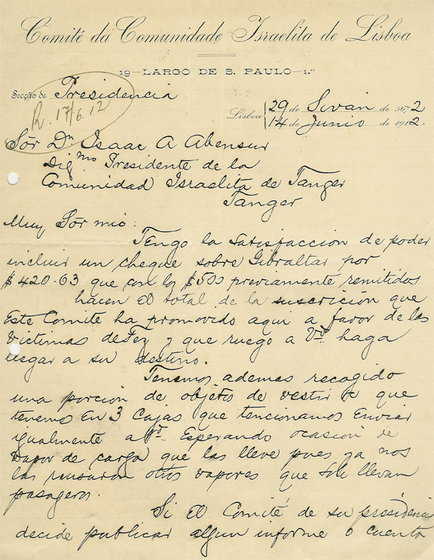 Comité da Comunidade Israelita de Lisboa
19 - LARGO DE S. PAULO - 1.º
Secção de Presidencia
R. 17/6.12
Lisboa 29 de Sivan de 5672
14 de Junio de 1912.
Sōr Dn Isaac A Abensur
Digmo Presidente de la
Comunidad Israelita de Tanger
Tanger
Muy Sōr mio:
Tengo la satisfaccion de poder
incluir un cheque sobre Gibraltar por
$420.63 que con los $500 previamente remitidos
hacen el total de la suscricion que
Este Comite ha promovido aqui a favor de las
Victimas de Fez y que ruego a Vd. haga
llegar a su destino.
Tenemos ademas recogido
una porcion de objetos de vestir que
tenemos en 3 Cajas que tencionamos enviar
igualmente a Vd. Esperando ocasion de
vapor de carga que las lleve pues ya nos
las rusaron otros vapores que solo llevan
pasageros.
Si el Comité de su presidencia
decide publicar algun informe o cuenta